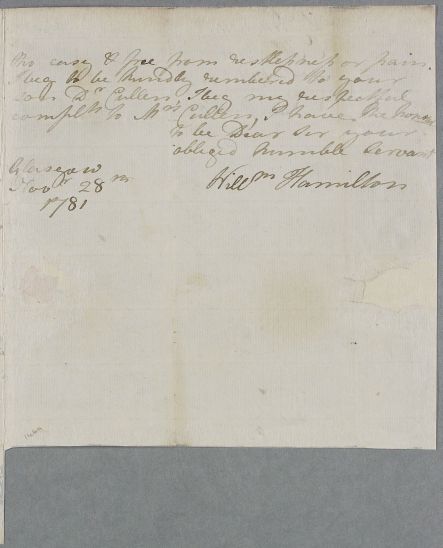 tho easy & free from restlesness or pain.
I beg to be kindly rembered to your
son Dr Cullen, I beg my respectful
complts to Mrs Cullen, I have the honour
to be Dear Sir your
obliged humble servant
Willm Hamilton
Glasgow
Novr 28th
1781